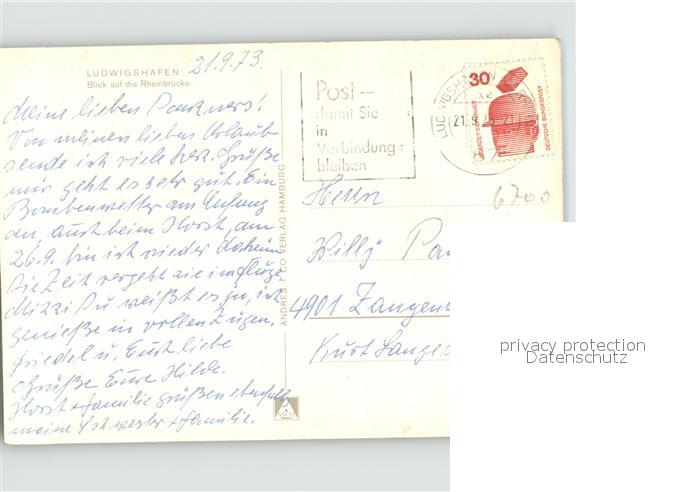 LUDWIGSHAFEN
Blick auf die Rheinbrücke
21.9.73.
Meine lieben Panzners!
Von meinen lieben Urlaub
sende ich viele herz. Grüße
mir geht es sehr gut. Ein
Bombenwetter am Anfang
an, auch beim Horst, am
26.9. bin ich wieder daheim
Die Zeit vergeht wie im Fluge
Mizzi Du weißt es ja, ich
genieße in vollen Zügen.
Friedel u. Euch liebe
Grüße Eure Hilde.
Horst + Familie grüßen ebenfalls
meine Schwester + Familie.
ANDRES + CO VERLAG HAMBURG
Post –
damit Sie
in
Verbindung
bleiben
LUDWIGSHAFEN
21.9.73
30
DEUTSCHE BUNDESPOST
6700
Herrn
Willy Pa
4901 Zangen
Kurt Lange
privacy protection
Datenschutz